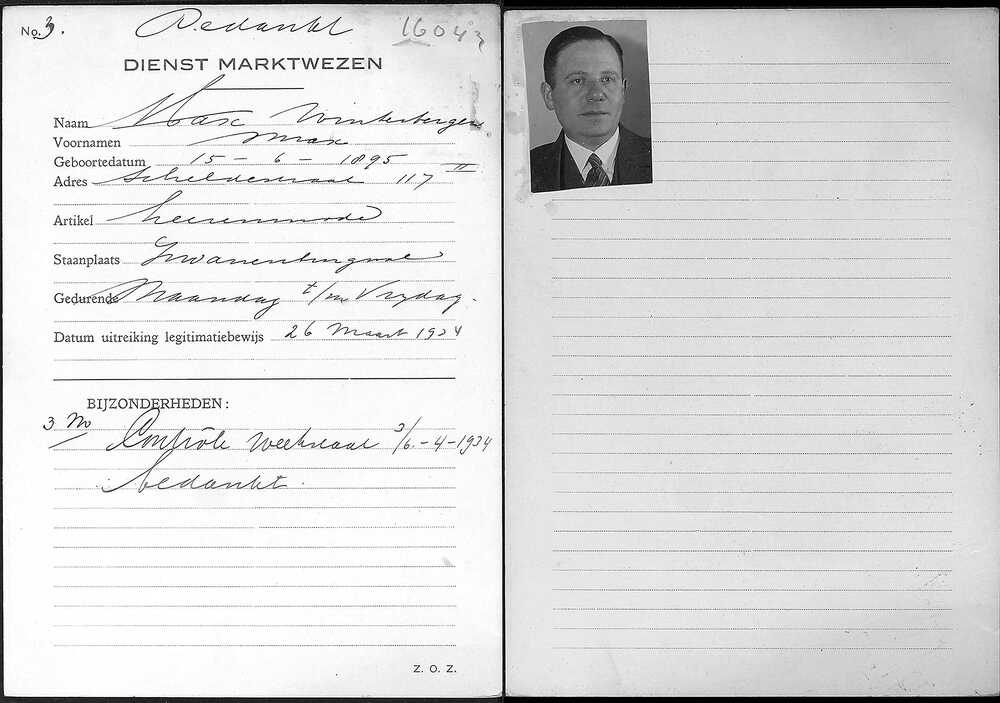 No. 3. Bedankt 16043
DIENST MARKTWEZEN
Naam Max Winterberger
Voornamen Max
Geboortedatum 15 - 6 - 1895
Adres Scheldestraat 117 II
Artikel heerenmode
Staanplaats Zwanenburgwal
Gedurende Maandag t/m Vrijdag.
Datum uitreiking legitimatiebewijs 26 Maart 1934
BIJZONDERHEDEN:
3 No
Contrôle weekstaat 3/6-4-1934
bedankt.
Z. O. Z.